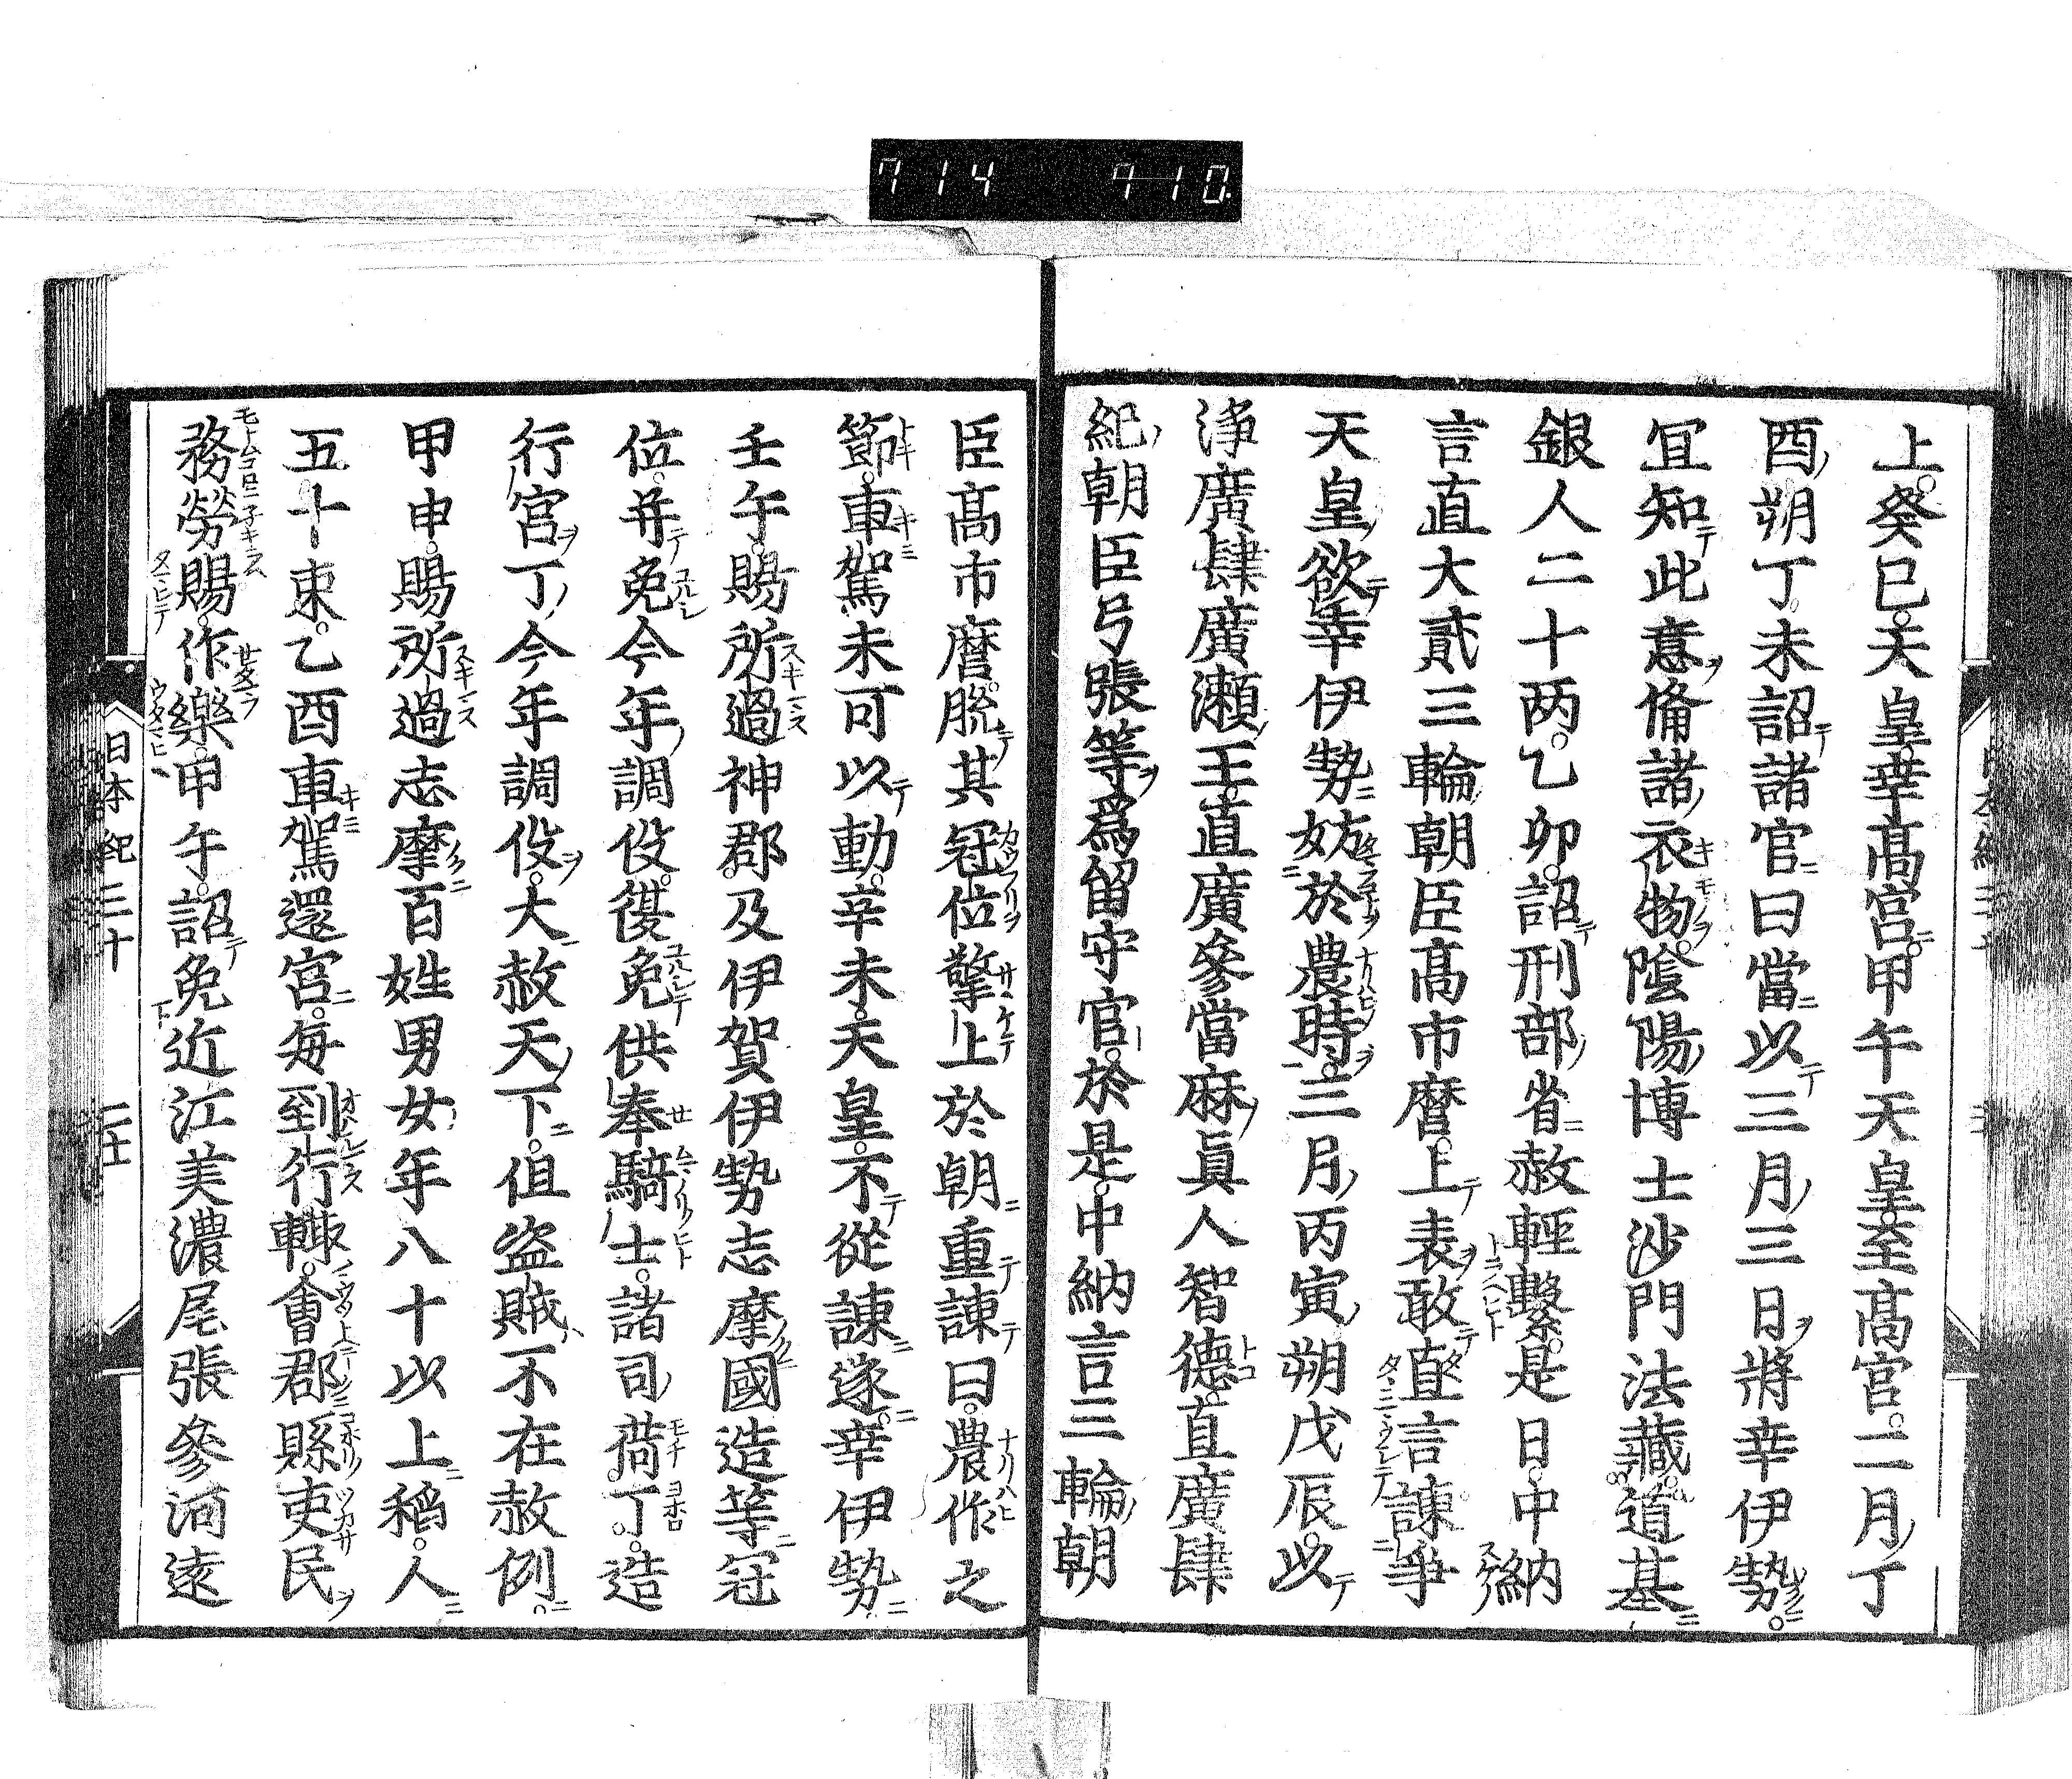 714 710
上癸巳天皇幸髙宮甲午天皇至髙宮二月丁
酉朔丁未詔諸官曰當以三月三日將幸伊勢
冝知此意俻諸衣物陰陽博士沙門法藏道基
銀人二十两乙卯詔刑部省赦輕繫是日中納
言直大貳三輪朝臣髙市麿上表敢直言諫爭
天皇欲幸伊勢妨於農時三月丙寅朔戊辰以
浄廣肆廣瀬王直廣參當麻眞人智德直廣肆
紀朝臣弓張等爲留守官於是中納言三輪朝
臣髙市麿脱其冠位擎上於朝重諌曰農作之
節車駕未可以動辛未天皇不從諌遂幸伊勢
壬午賜所過神郡及伊賀伊勢志摩國造等冠
位并免今年調伇復免供奉騎士諸司荷丁造
行宮丁今年調伇大赦天下但盗賊不在赦例
甲申賜所過志摩百姓男女年八十以上稲人
五十束乙酉車駕還宮毎到行輙會郡縣吏民
務勞賜作樂甲午詔免近江美濃尾張參河遠
日本紀三十